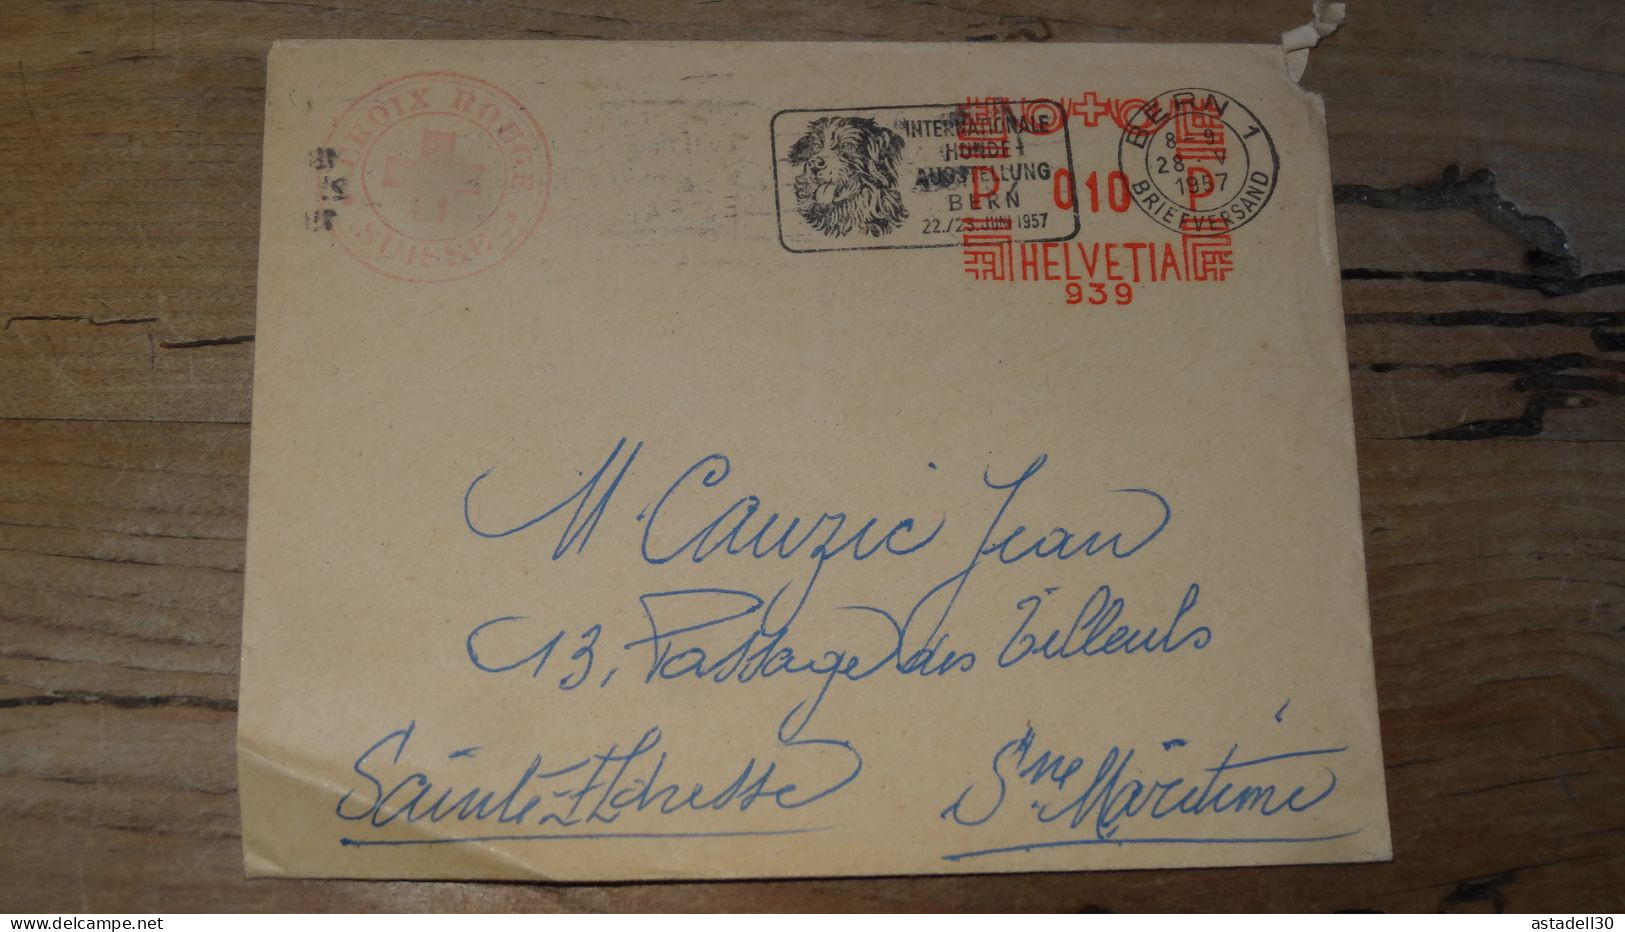 CROIX ROUGE
SUISSE
INTERNATIONALE
HUNDE-
AUSSTELLUNG
BERN
22./23. JUNI 1957
P 010 P
HELVETIA
939
BERN 1
8-9
28. V
1957
BRIEFVERSAND
M. Cauzic Jean
13, Passage des Tilleuls
Sainte-Adresse Sne Maritime
© delcampe.net
astadell30